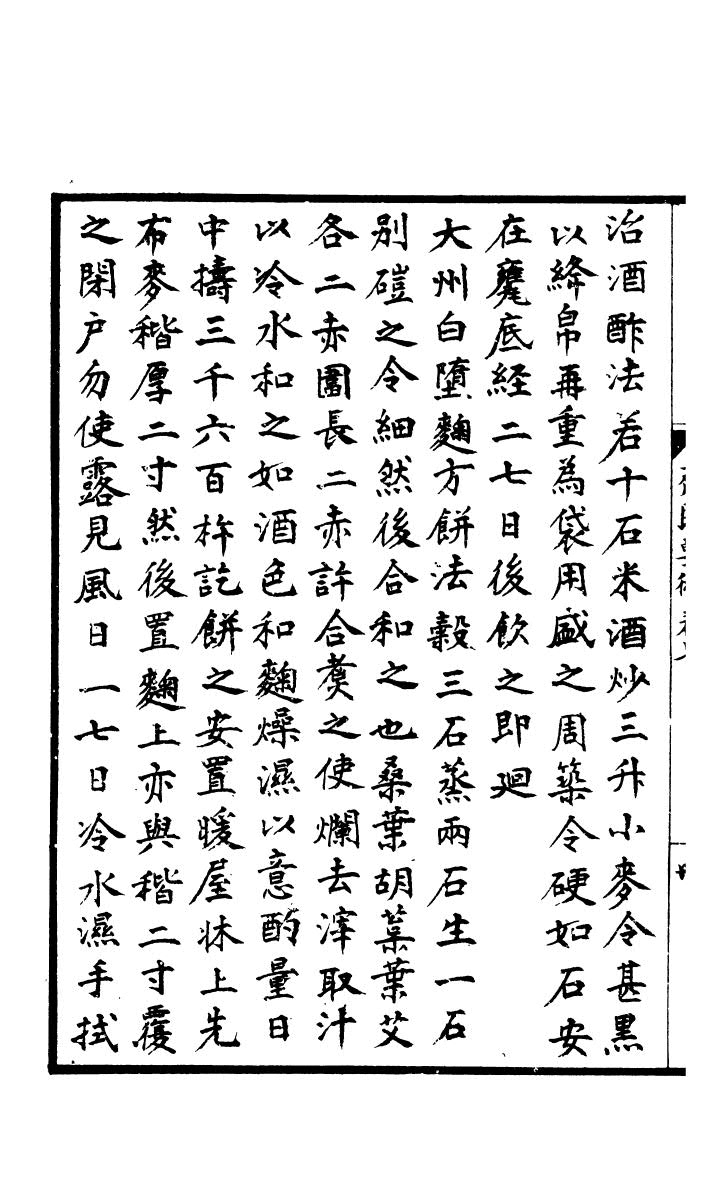 治酒酢法若十石米酒炒三升小麥令甚黑
以絳帛再重為袋用盛之周築令硬如石安
在甕底経二七日後飲之即廻
大州白墮麴方餅法穀三石蒸兩石生一石
别磑之令細然後合和之也桑葉胡葈葉艾
各二赤圍長二赤許合煑之使爛去滓取汁
以冷水和之如酒色和麴燥濕以意酌量日
中擣三千六百杵訖餅之安置暖屋牀上先
布麥稭厚二寸然後置麴上亦與稭二寸覆
之閉户勿使露見風日一七日冷水濕手拭